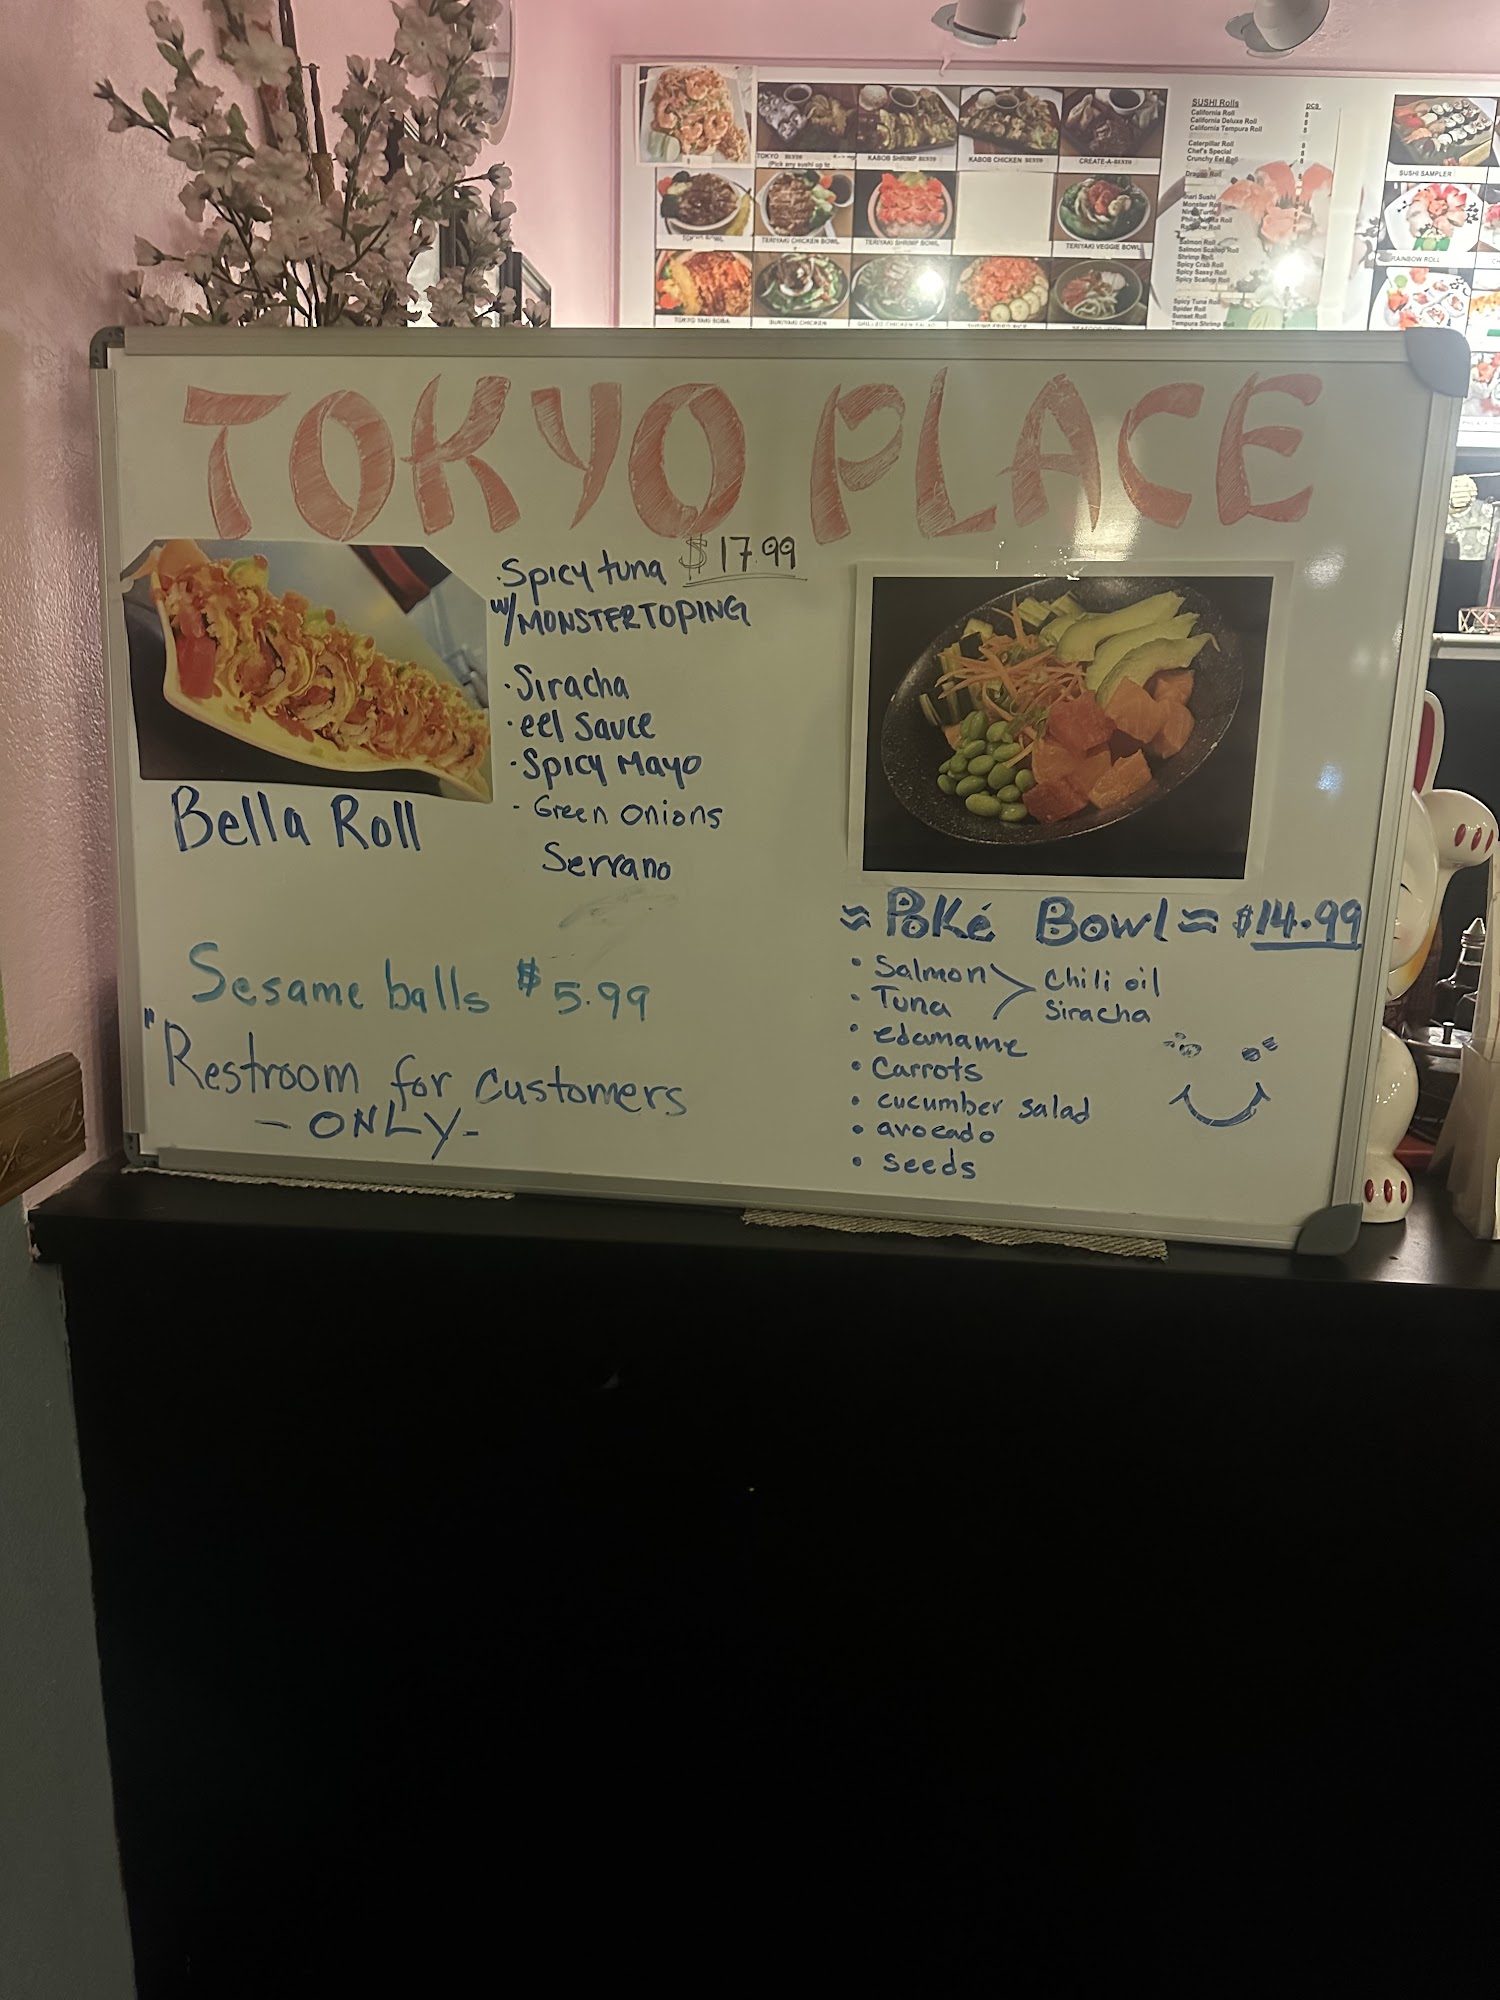 TOKYO PLACE
· Spicy tuna $17.99
w/ MONSTER TOPING
· Siracha
· eel Sauce
· Spicy Mayo
- Green Onions
Serrano
Bella Roll
Sesame balls $5.99
"Restroom for customers
- ONLY -
≈ Poké Bowl ≈ $14.99
• Salmon > Chili oil
• Tuna Siracha
• edamame
• Carrots
• cucumber salad
• avocado
• seeds
KABOB SHRIMP BENTO
KABOB CHICKEN BENTO
CREATE-A-BENTO
TERIYAKI CHICKEN BOWL
TERIYAKI SHRIMP BOWL
TERIYAKI VEGGIE BOWL
SUSHI Rolls pcs
California Roll 8
California Deluxe Roll 8
California Tempura Roll 8
Caterpillar Roll 8
Chef's Special 8
Crunchy Eel Roll 8
Dragon Roll
Monster Roll
Rainbow Roll
Salmon Roll
Salmon Scallop Roll
Shrimp Roll
Spicy Crab Roll
Spicy Sassy Roll
Spicy Scallop Roll
Spicy Tuna Roll
Spider Roll
Sunset Roll
Tempura Shrimp Roll
SUSHI SAMPLER
RAINBOW ROLL